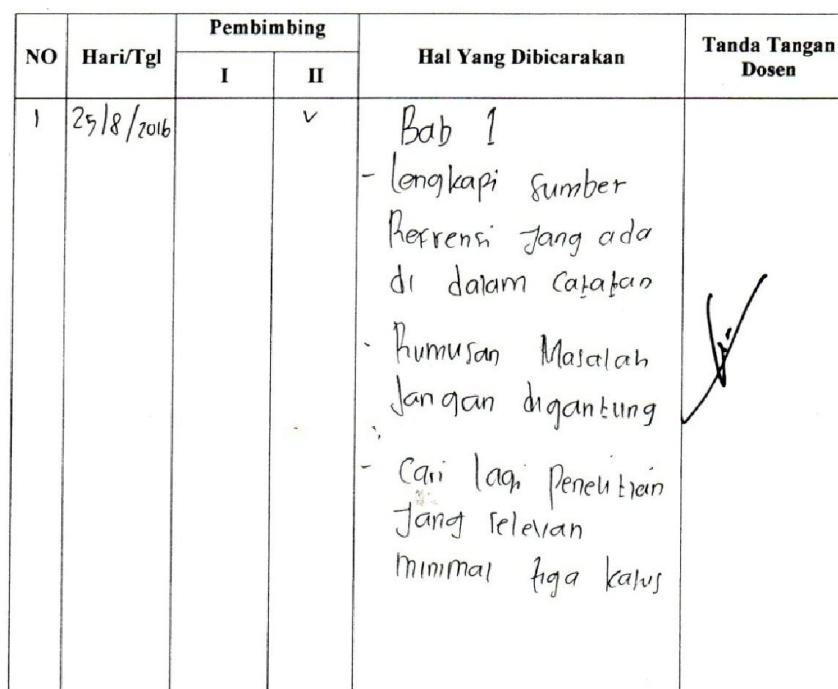 NO Hari/Tgl Pembimbing Hal Yang Dibicarakan Tanda Tangan
Dosen
I II
1 25/8/2016 v Bab 1
- lengkapi sumber
Refrensi Jang ada
di dalam Catatan
- Rumusan Masalah
Jangan digantung
- Cari lagi Penelitian
Jang relevan
minimal tiga kasus